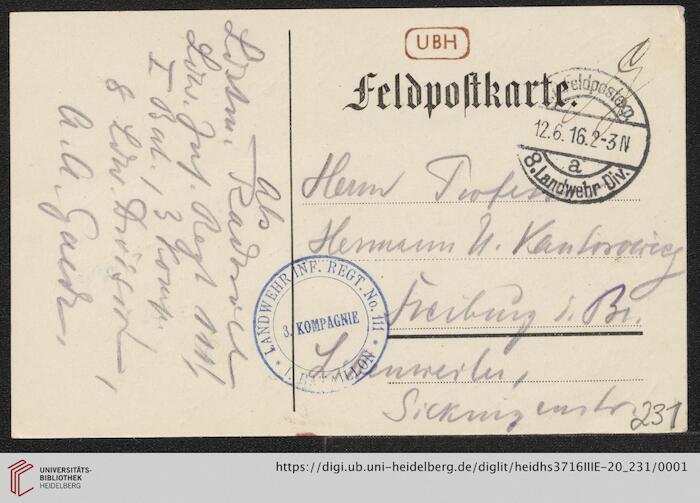 UBH
Feldpostkarte.
Feldpostexp.
12.6.16.2-3N
a
8. Landwehr-Div.
Abs
Lstm. Radbruch
Ldw. Inf. Regt 111,
I Bat. / 3 Komp.
8 Ldw. Division,
A. A. Gaede,
Herrn Profess
Hermann U. Kantorowicz
Freiburg i. Br.
Sickingenstr.
LANDWEHR INF. REGT. No. 111
3. KOMPAGNIE
I. BATAILLON
231
UNIVERSITÄTS-
BIBLIOTHEK
HEIDELBERG
https://digi.ub.uni-heidelberg.de/diglit/heidhs3716IIIE-20_231/0001